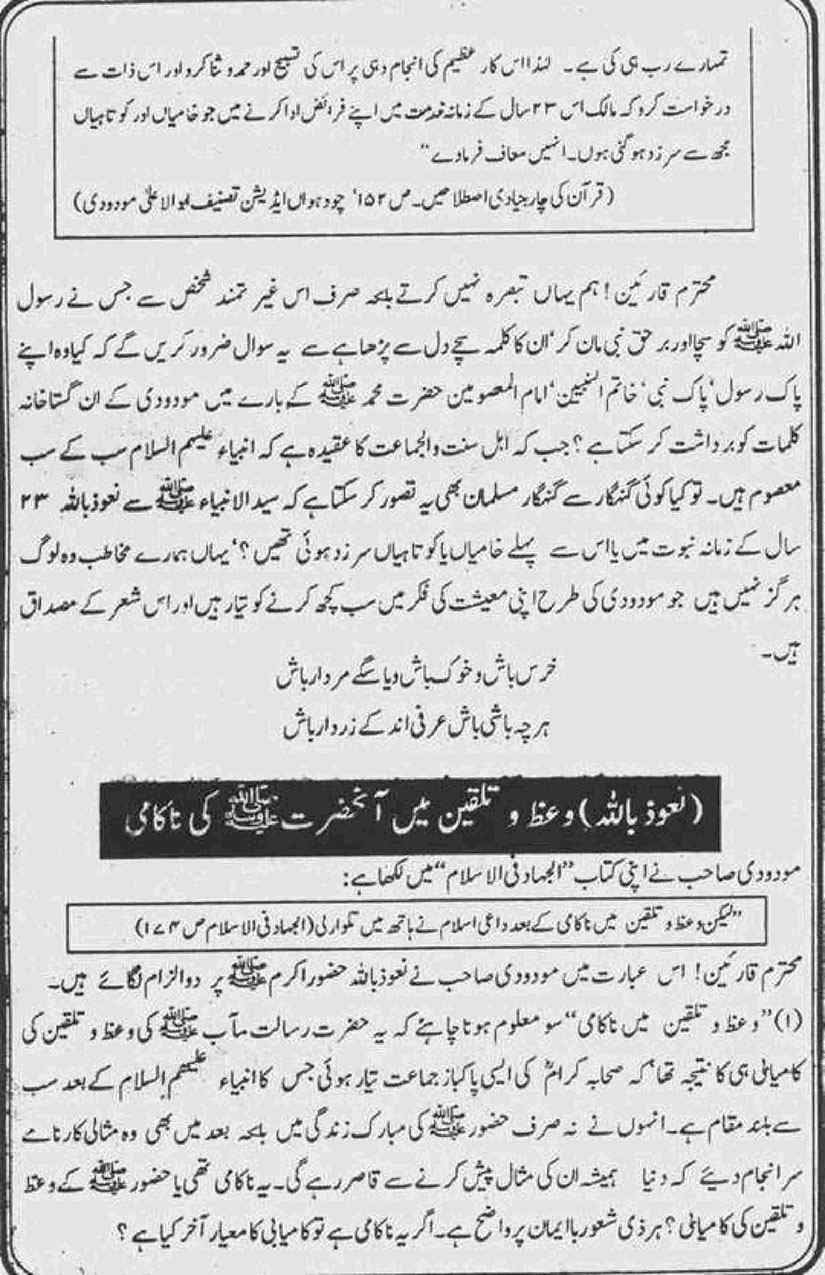 تمہارے رب ہی کی ہے۔ لہٰذا اس کار عظیم کی انجام دہی پر اس کی تسبیح اور حمد و ثنا کرو اور اس ذات سے
درخواست کرو کہ مالک اس ۲۳ سال کے زمانہ خدمت میں اپنے فرائض ادا کرنے میں جو خامیاں اور کوتاہیاں
مجھ سے سرزد ہو گئی ہوں۔ انہیں معاف فرما دے"
(قرآن کی چار بنیادی اصطلاحیں۔ ص ۱۵۲' چودہواں ایڈیشن تصنیف ابوالاعلیٰ مودودی)
محترم قارئین! ہم یہاں تبصرہ نہیں کرتے بلکہ صرف اس غیرتمند شخص سے جس نے رسول
اللہ ﷺ کو سچا اور برحق نبی مان کر' ان کا کلمہ سچے دل سے پڑھا ہے سے یہ سوال ضرور کریں گے کہ کیا وہ اپنے
پاک رسول' پاک نبی' خاتم النبیین' امام المعصومین حضرت محمد ﷺ کے بارے میں مودودی کے ان گستاخانہ
کلمات کو برداشت کر سکتا ہے؟ جب کہ اہل سنت والجماعت کا عقیدہ ہے کہ انبیاء علیہم السلام سب کے سب
معصوم ہیں۔ تو کیا کوئی گنہگار سے گنہگار مسلمان بھی یہ تصور کر سکتا ہے کہ سید الانبیاء ﷺ سے نعوذ باللہ ۲۳
سال کے زمانہ نبوت میں یا اس سے پہلے خامیاں یا کوتاہیاں سرزد ہوئی تھیں؟' یہاں ہمارے مخاطب وہ لوگ
ہرگز نہیں ہیں جو مودودی کی طرح اپنی معیشت کی فکر میں سب کچھ کرنے کو تیار ہیں اور اس شعر کے مصداق
ہیں۔
خرس باش و خوک باش و یا سگے مردار باش
ہرچہ باشی باش عرفی اندکے زردار باش
(نعوذ باللہ) وعظ و تلقین میں آنحضرت ﷺ کی ناکامی
مودودی صاحب نے اپنی کتاب "الجہاد فی الاسلام" میں لکھا ہے:
"لیکن وعظ و تلقین میں ناکامی کے بعد داعی اسلام نے ہاتھ میں تلوار لی (الجہاد فی الاسلام ص ۱۷۴)
محترم قارئین! اس عبارت میں مودودی صاحب نے نعوذ باللہ حضور اکرم ﷺ پر دو الزام لگائے ہیں۔
(۱) "وعظ و تلقین میں ناکامی" سو معلوم ہونا چاہئے کہ یہ حضرت رسالت مآب ﷺ کی وعظ و تلقین کی
کامیابی ہی کا نتیجہ تھا' کہ صحابہ کرامؓ کی ایسی پاکباز جماعت تیار ہوئی جس کا انبیاء علیہم السلام کے بعد سب
سے بلند مقام ہے۔ انہوں نے نہ صرف حضور ﷺ کی مبارک زندگی میں بلکہ بعد میں بھی وہ مثالی کارنامے
سرانجام دیئے کہ دنیا ہمیشہ ان کی مثال پیش کرنے سے قاصر رہے گی۔ یہ ناکامی تھی یا حضور ﷺ کے وعظ
و تلقین کی کامیابی؟ ہر ذی شعور باایمان پر واضح ہے۔ اگر یہ ناکامی ہے تو کامیابی کا معیار آخر کیا ہے؟